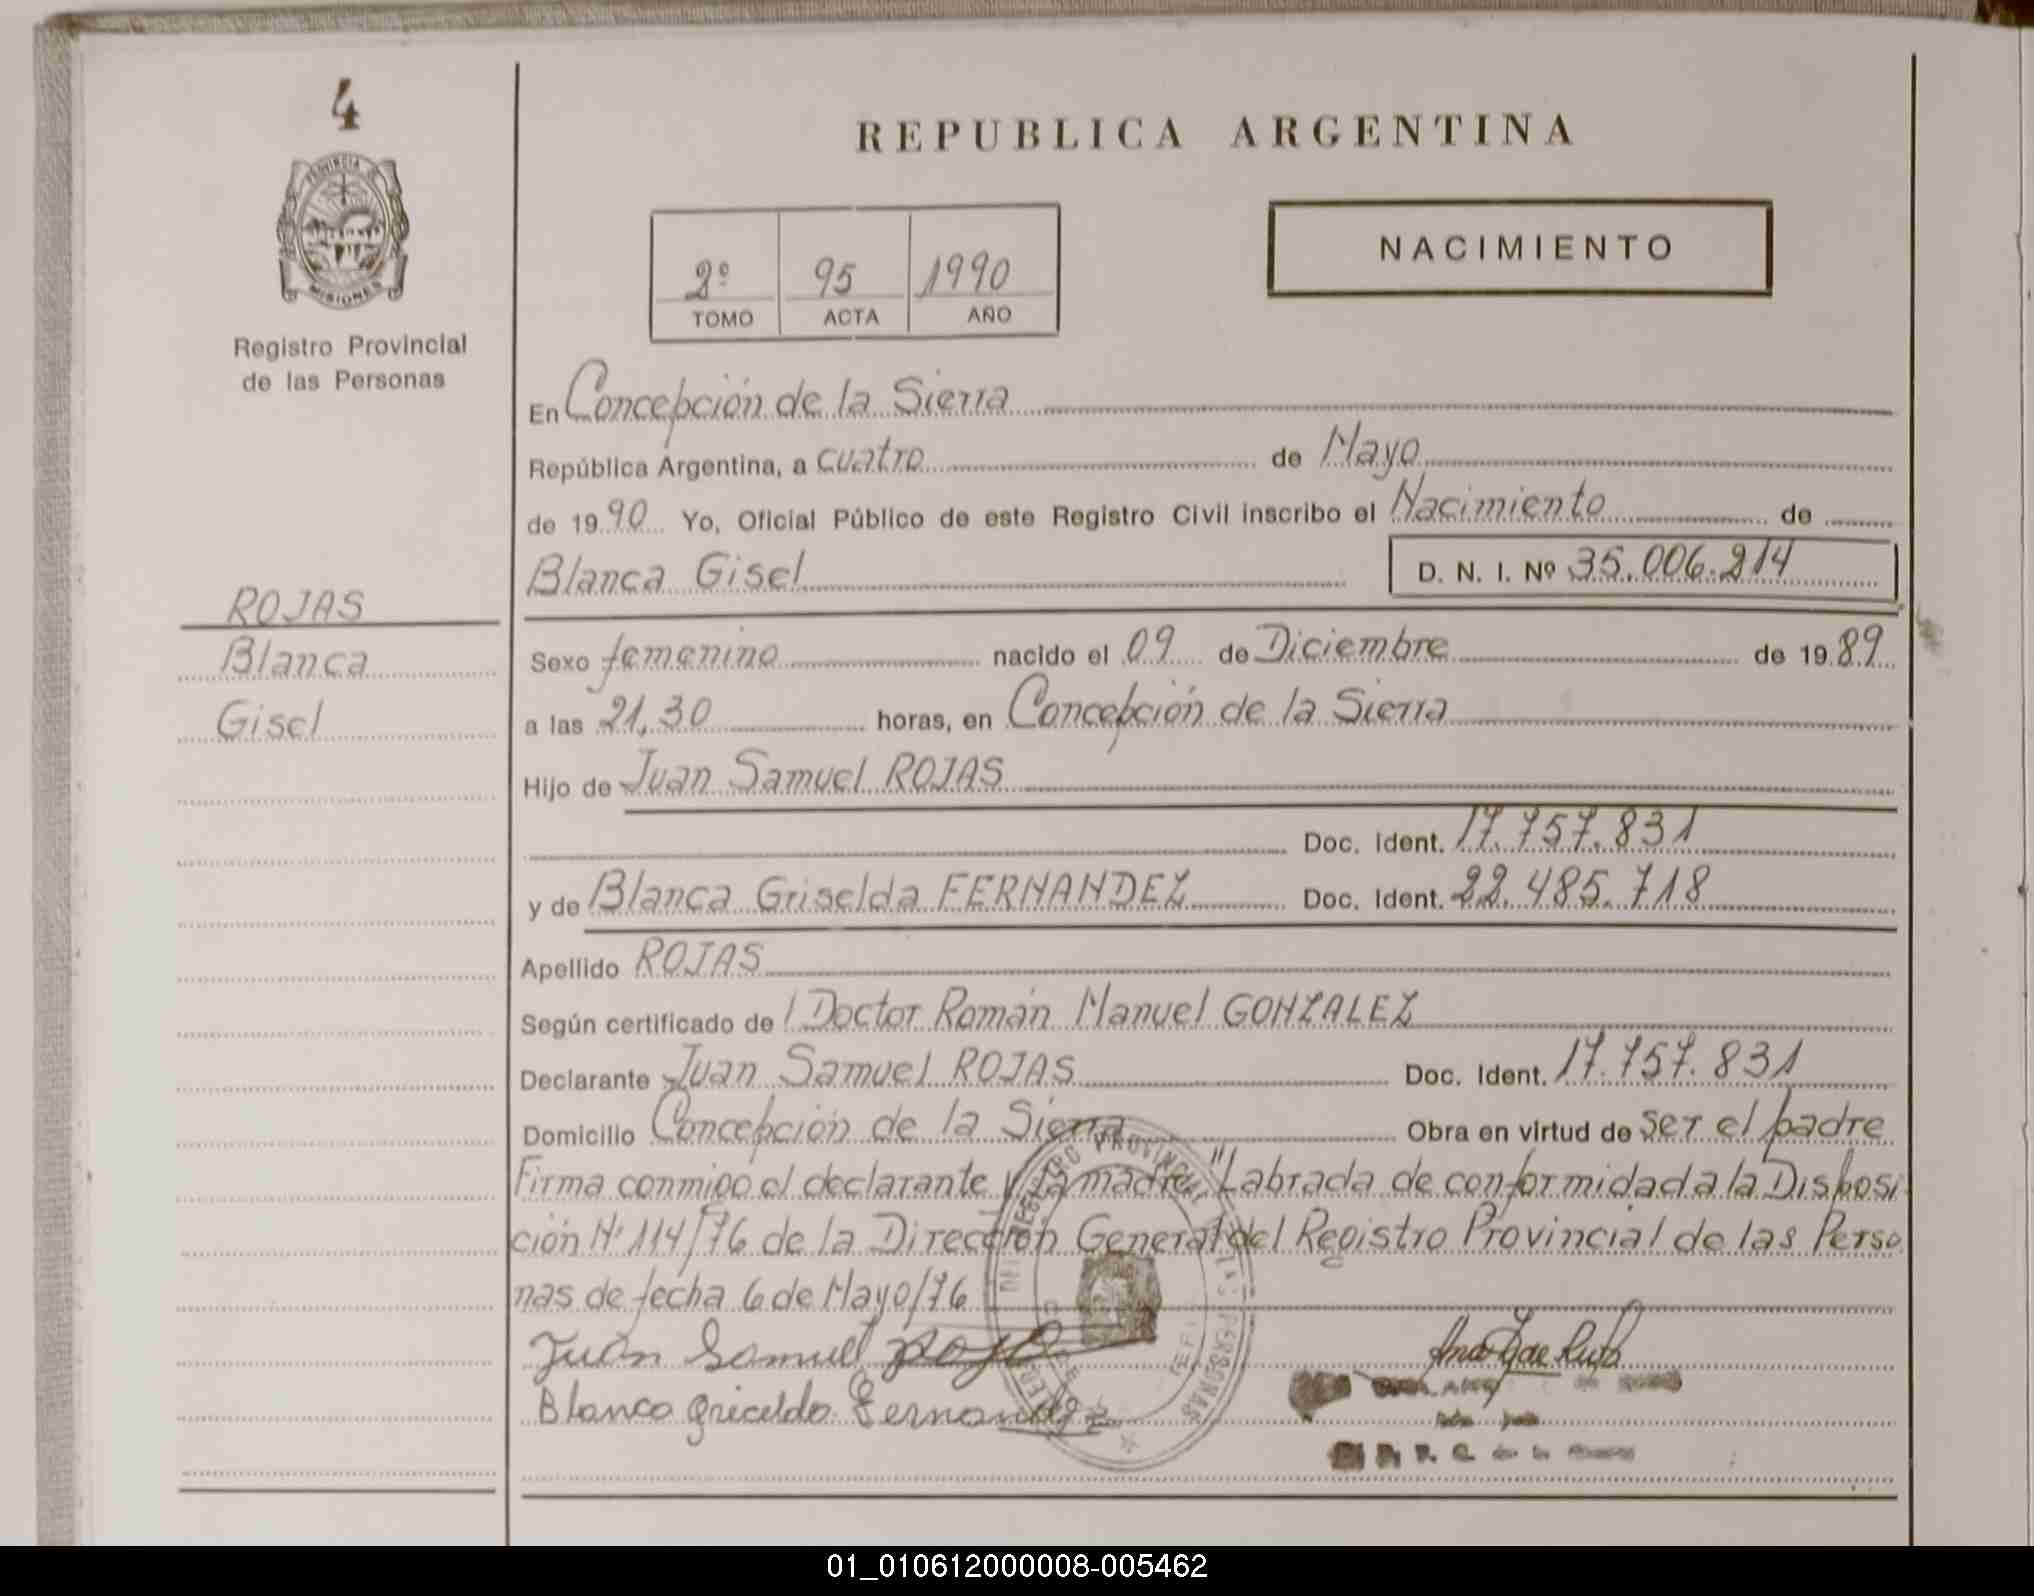 4
PROVINCIA DE
MISIONES
Registro Provincial
de las Personas
ROJAS
Blanca
Gisel
REPUBLICA ARGENTINA
2º 95 1990
TOMO ACTA AÑO
NACIMIENTO
En Concepción de la Sierra
República Argentina, a cuatro de Mayo
de 1990 Yo, Oficial Público de este Registro Civil inscribo el Nacimiento de
Blanca Gisel D. N. I. Nº 35.006.214
Sexo femenino nacido el 09 de Diciembre de 1989
a las 21,30 horas, en Concepción de la Sierra
Hijo de Juan Samuel ROJAS
Doc. Ident. 17.757.831
y de Blanca Griselda FERNANDEZ Doc. Ident. 22.485.718
Apellido ROJAS
Según certificado de l Doctor Román Manuel GONZALEZ
Declarante Juan Samuel ROJAS Doc. Ident. 17.757.831
Domicilio Concepción de la Sierra Obra en virtud de ser el padre
Firma conmigo el declarante y la madre "Labrada de conformidad a la Disposi
ción Nº 114/76 de la Dirección General del Registro Provincial de las Perso
nas de fecha 6 de Mayo/76
Juan Samuel Rojas
Blanca Griselda Fernandez
REGISTRO PROVINCIAL DE LAS PERSONAS
01_010612000008-005462